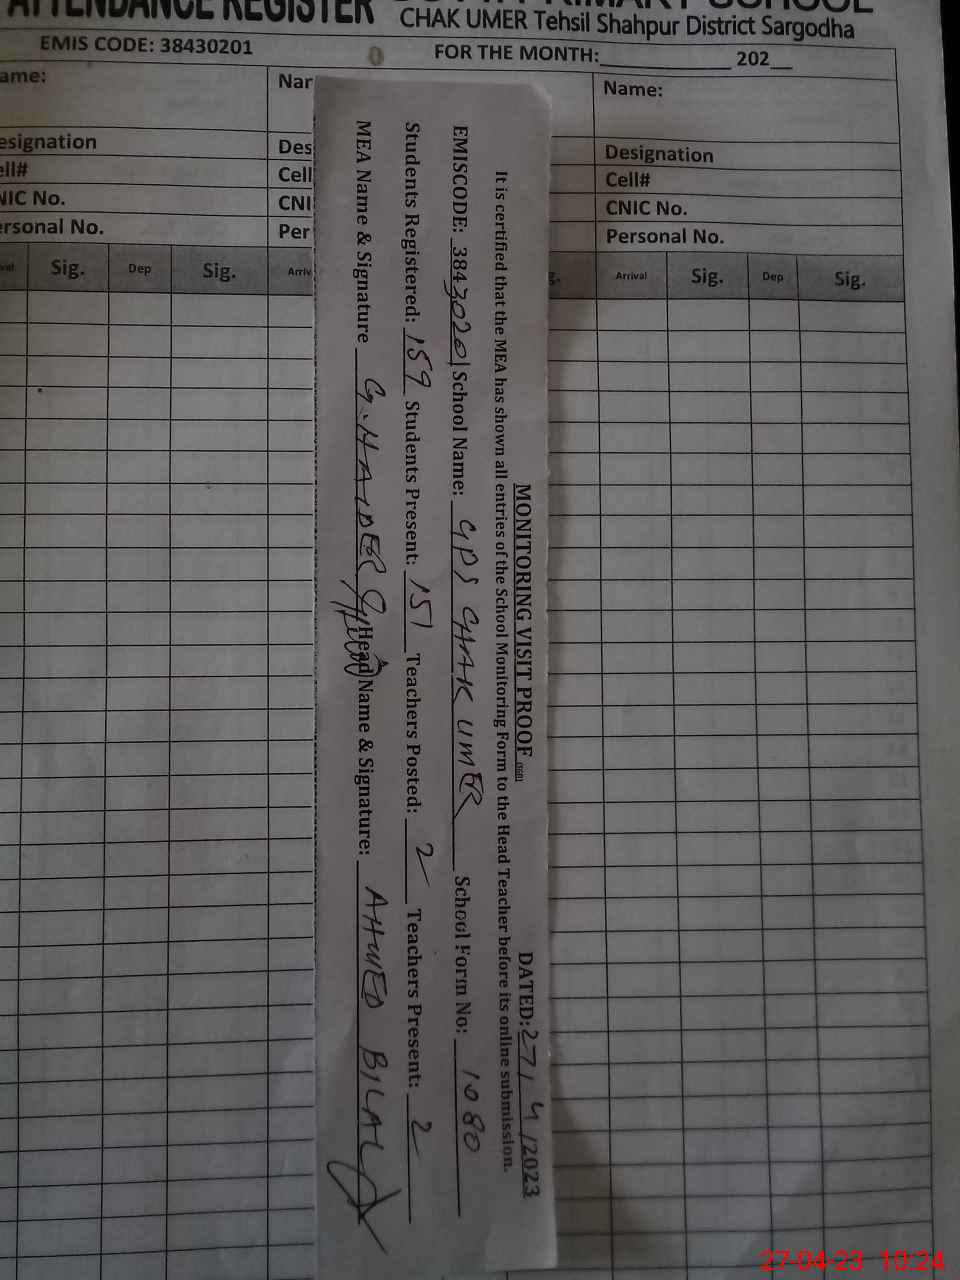 ATTENDANCE REGISTER
PRIMARY SCHOOL
CHAK UMER Tehsil Shahpur District Sargodha
EMIS CODE: 38430201 FOR THE MONTH:____________ 202__
ame: Nar Name:
esignation Des Designation
ell# Cell Cell#
NIC No. CNI CNIC No.
ersonal No. Per Personal No.
val Sig. Dep Sig. Arriv g. Arrival Sig. Dep Sig.
MONITORING VISIT PROOF DATED: 27/4/2023
It is certified that the MEA has shown all entries of the School Monitoring Form to the Head Teacher before its online submission.
EMISCODE: 38430201 School Name: GPS CHAK UMER School Form No: 1080
Students Registered: 159 Students Present: 151 Teachers Posted: 2 Teachers Present: 2
MEA Name & Signature G.HAIDER Head Name & Signature: AHMED BILAL
27-04-23 10:24